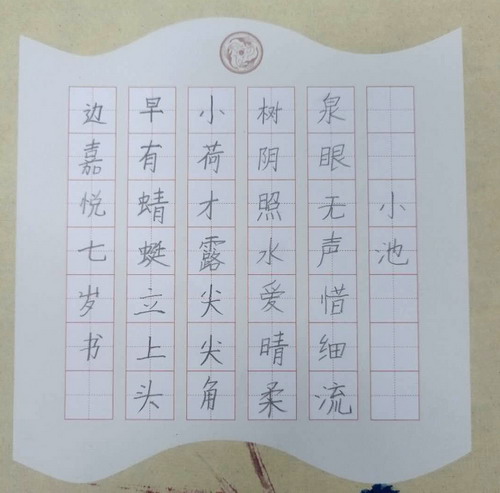 小池
泉眼无声惜细流
树阴照水爱晴柔
小荷才露尖尖角
早有蜻蜓立上头
边嘉悦七岁书